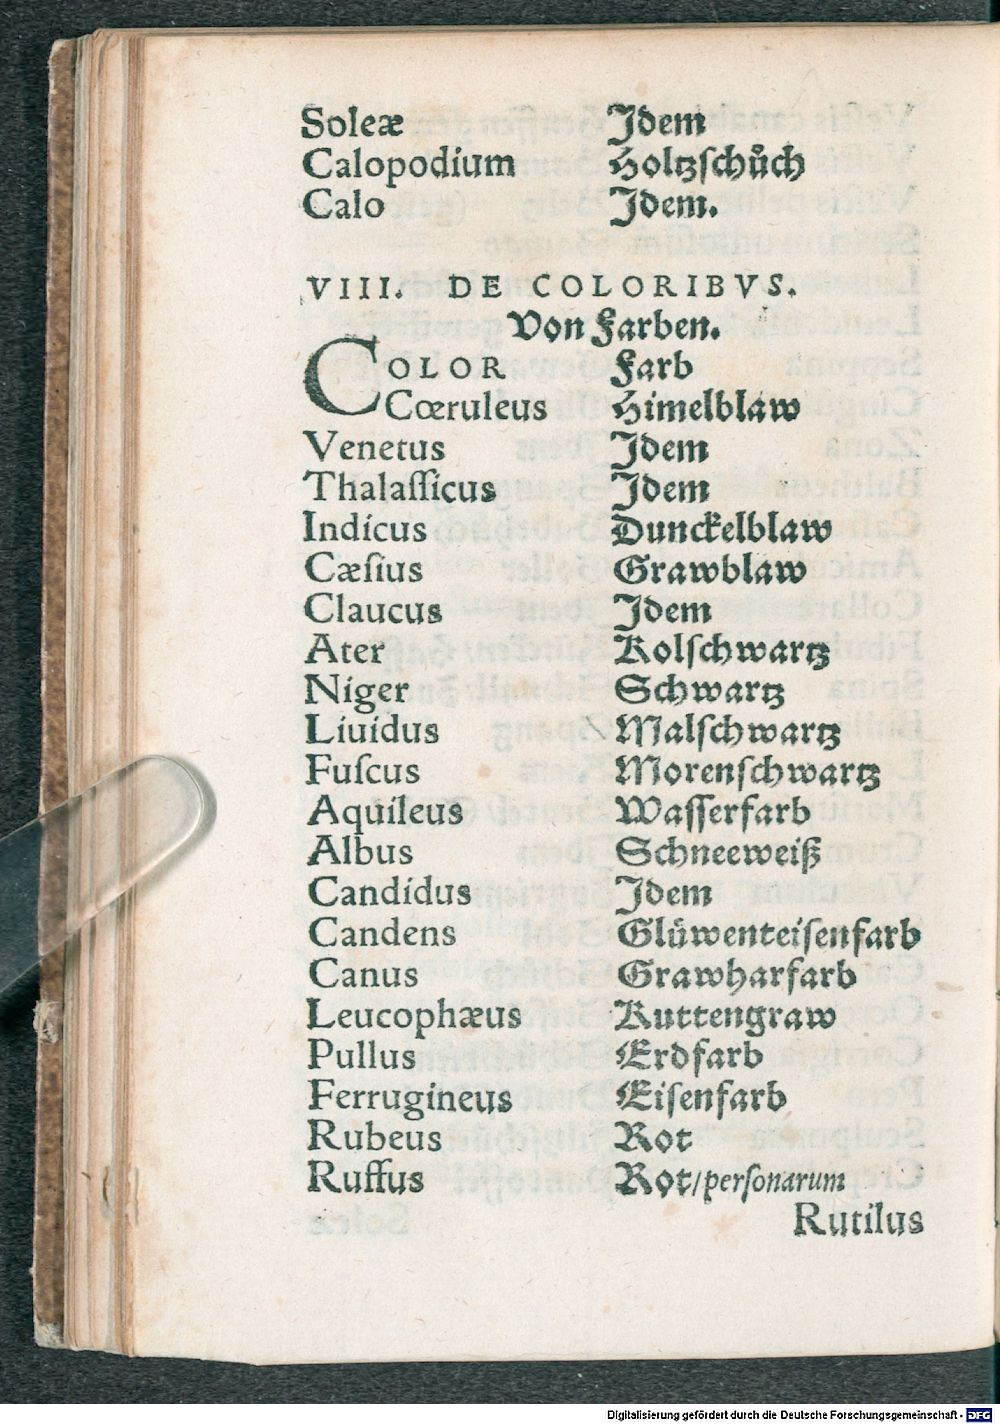 Soleæ Idem
Calopodium Holtzschůch
Calo Idem.
VIII. DE COLORIBVS.
Von Farben.
COLOR Farb
Cœruleus Himelblaw
Venetus Idem
Thalaſſicus Idem
Indicus Dunckelblaw
Cæſius Grawblaw
Claucus Idem
Ater Kolſchwartz
Niger Schwartz
Liuidus Malſchwartz
Fuſcus Morenſchwartz
Aquileus Waſſerfarb
Albus Schneeweiß
Candidus Idem
Candens Glüwenteiſenfarb
Canus Grawharfarb
Leucophæus Kuttengraw
Pullus Erdfarb
Ferrugineus Eiſenfarb
Rubeus Rot
Ruffus Rot/perſonarum
Rutilus
Digitalisierung gefördert durch die Deutsche Forschungsgemeinschaft - DFG